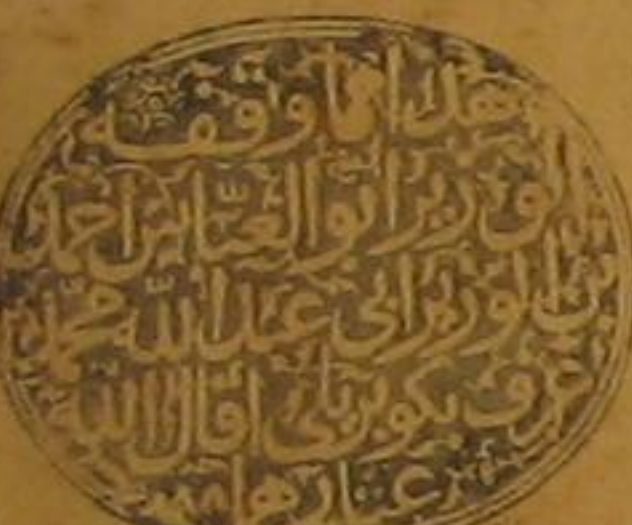 هذا ما وقفه
الوزير ابو العباس احمد
بن الوزير ابي عبد الله محمد
عرف بكوبريلي اقال الله
عثارهما